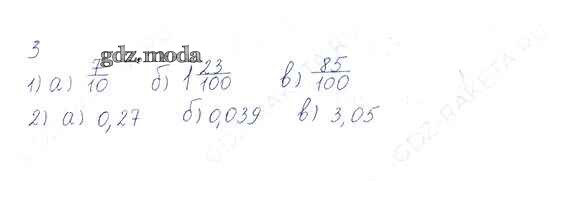 3
gdz.moda
1) а) 7/10 б) 1 23/100 в) 85/100
2) а) 0,27 б) 0,039 в) 3,05
GDZ-RAKETA.RU
GDZ-RAKETA.RU
GDZ-RAKETA.RU